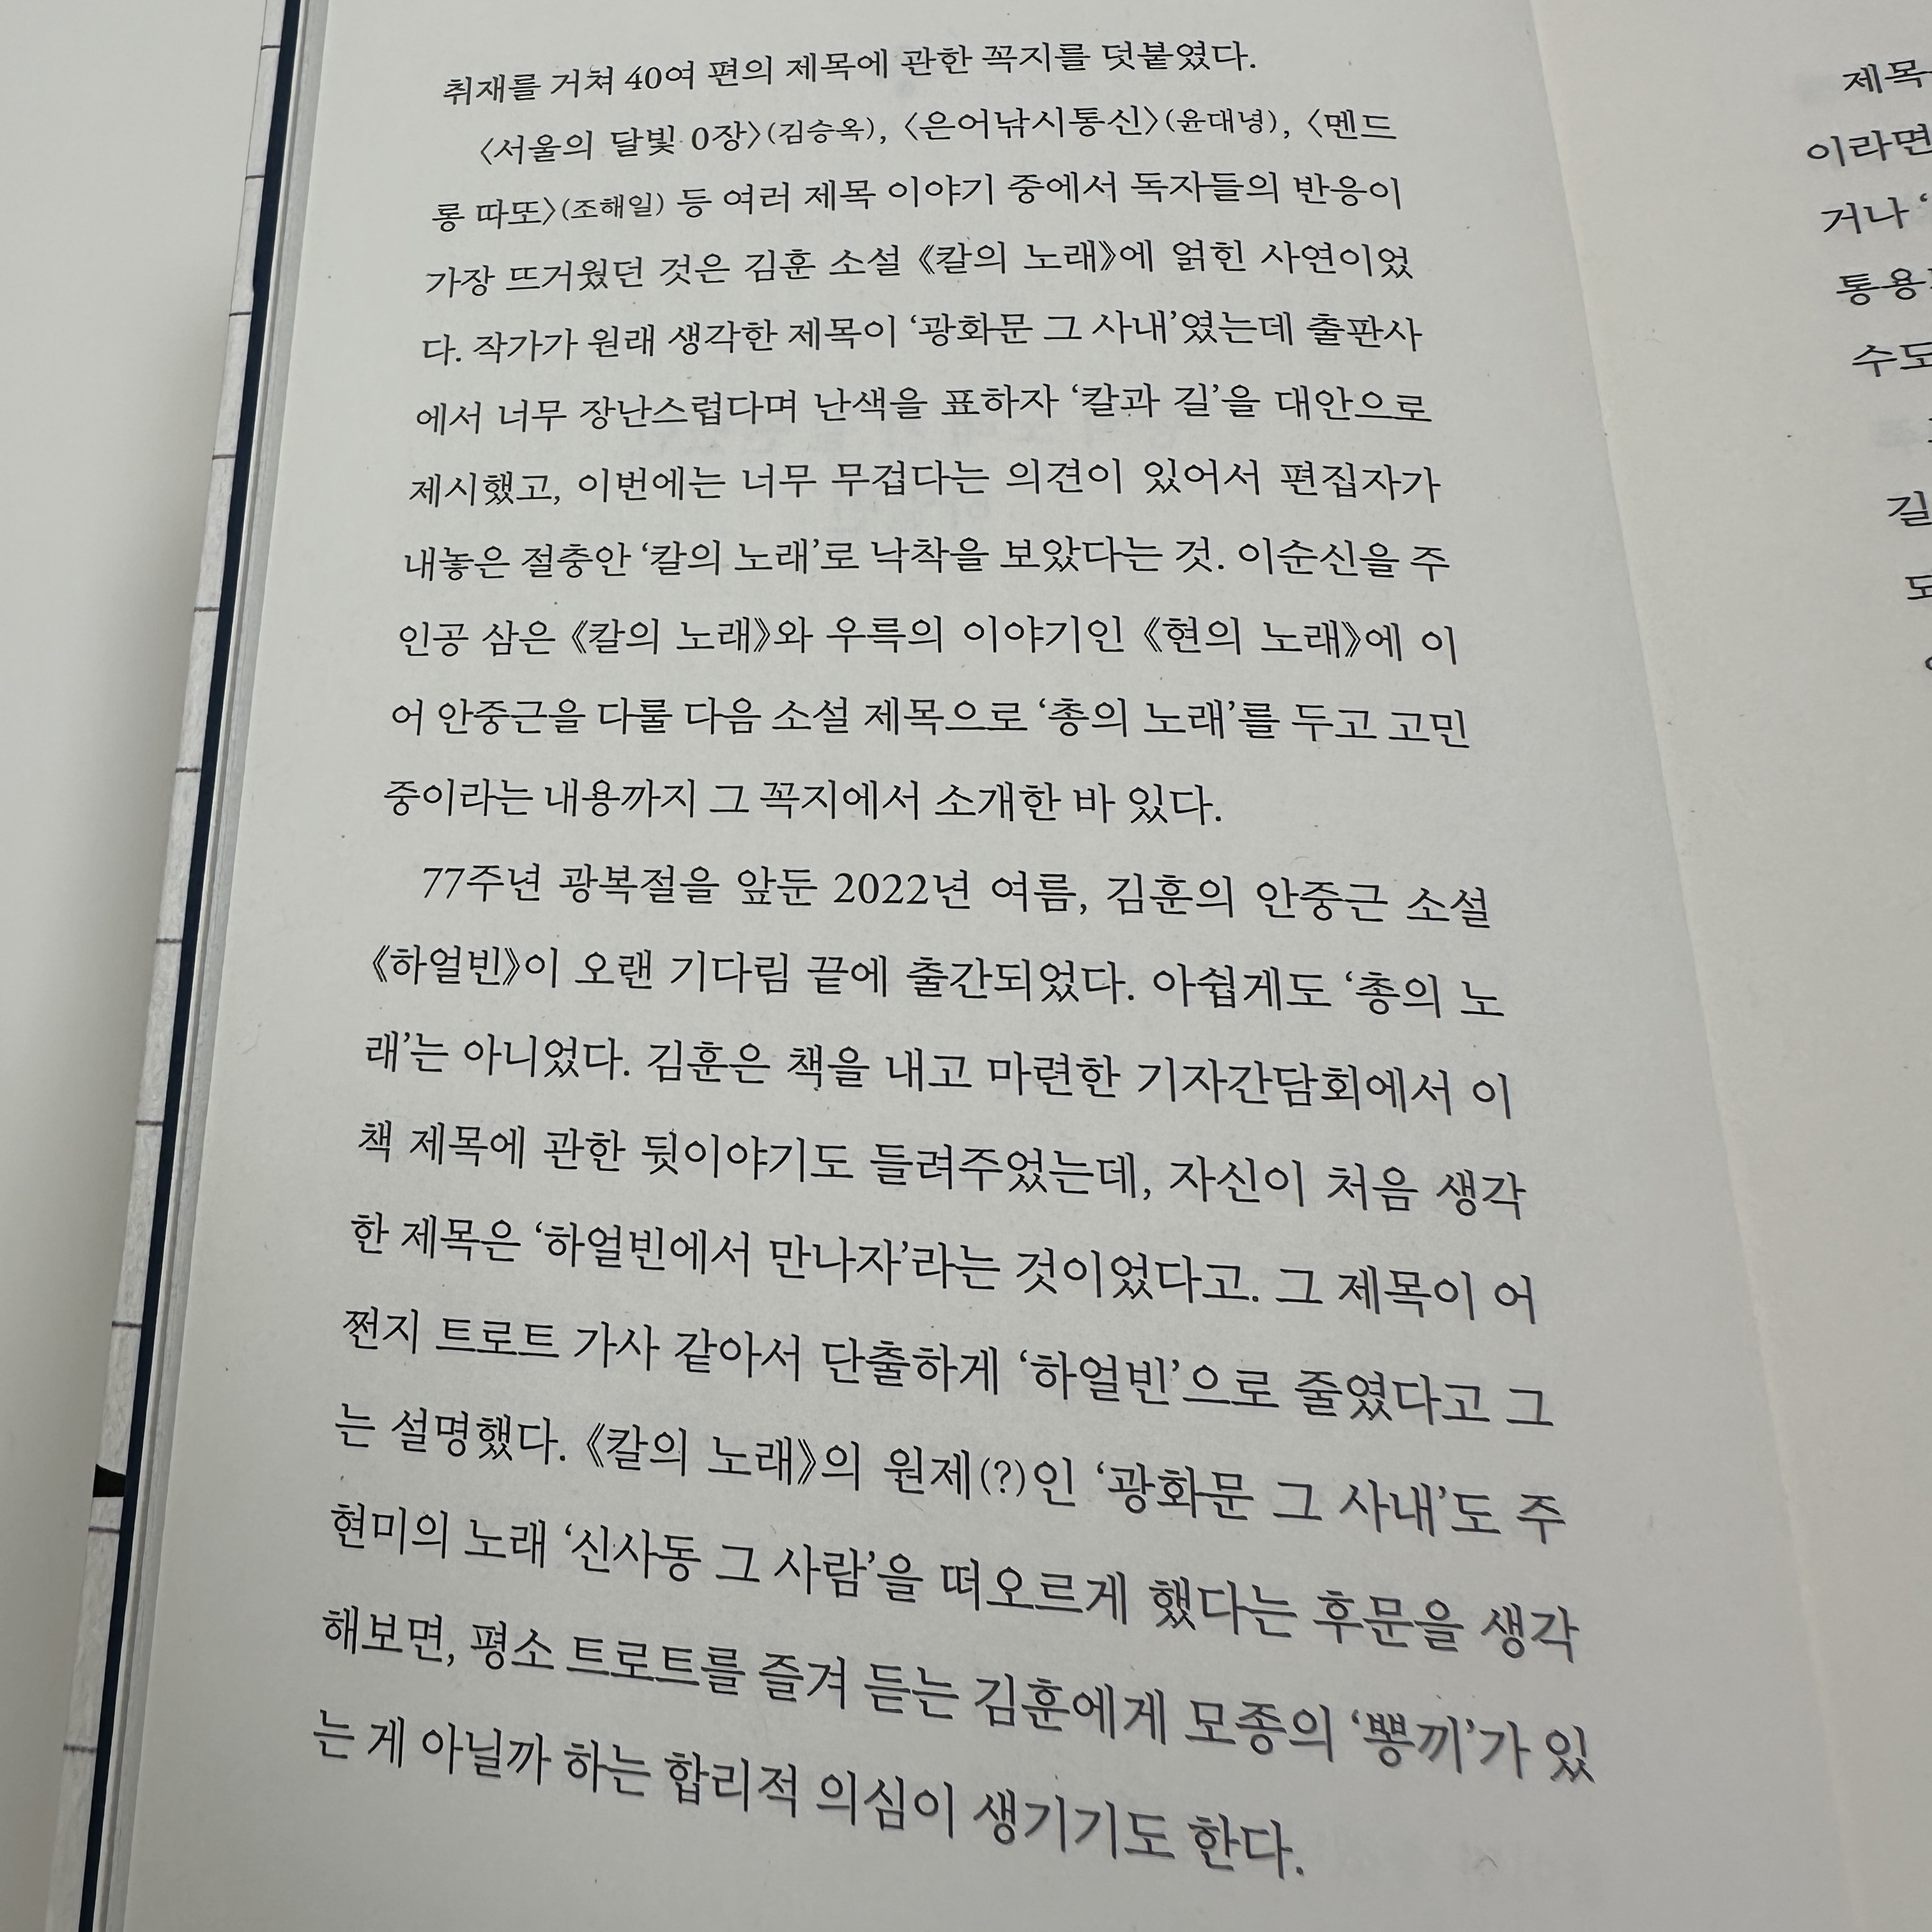 취재를 거쳐 40여 편의 제목에 관한 꼭지를 덧붙였다.
〈서울의 달빛 0장〉(김승옥), 〈은어낚시통신〉(윤대녕), 〈멘드
롱 따또〉(조해일) 등 여러 제목 이야기 중에서 독자들의 반응이
가장 뜨거웠던 것은 김훈 소설 《칼의 노래》에 얽힌 사연이었
다. 작가가 원래 생각한 제목이 ‘광화문 그 사내’였는데 출판사
에서 너무 장난스럽다며 난색을 표하자 ‘칼과 길’을 대안으로
제시했고, 이번에는 너무 무겁다는 의견이 있어서 편집자가
내놓은 절충안 ‘칼의 노래’로 낙착을 보았다는 것. 이순신을 주
인공 삼은 《칼의 노래》와 우륵의 이야기인 《현의 노래》에 이
어 안중근을 다룰 다음 소설 제목으로 ‘총의 노래’를 두고 고민
중이라는 내용까지 그 꼭지에서 소개한 바 있다.
77주년 광복절을 앞둔 2022년 여름, 김훈의 안중근 소설
《하얼빈》이 오랜 기다림 끝에 출간되었다. 아쉽게도 ‘총의 노
래’는 아니었다. 김훈은 책을 내고 마련한 기자간담회에서 이
책 제목에 관한 뒷이야기도 들려주었는데, 자신이 처음 생각
한 제목은 ‘하얼빈에서 만나자’라는 것이었다고. 그 제목이 어
쩐지 트로트 가사 같아서 단출하게 ‘하얼빈’으로 줄였다고 그
는 설명했다. 《칼의 노래》의 원제(?)인 ‘광화문 그 사내’도 주
현미의 노래 ‘신사동 그 사람’을 떠오르게 했다는 후문을 생각
해보면, 평소 트로트를 즐겨 듣는 김훈에게 모종의 ‘뽕끼’가 있
는 게 아닐까 하는 합리적 의심이 생기기도 한다.
제목
이라면
거나 ‘
통용
수도
길